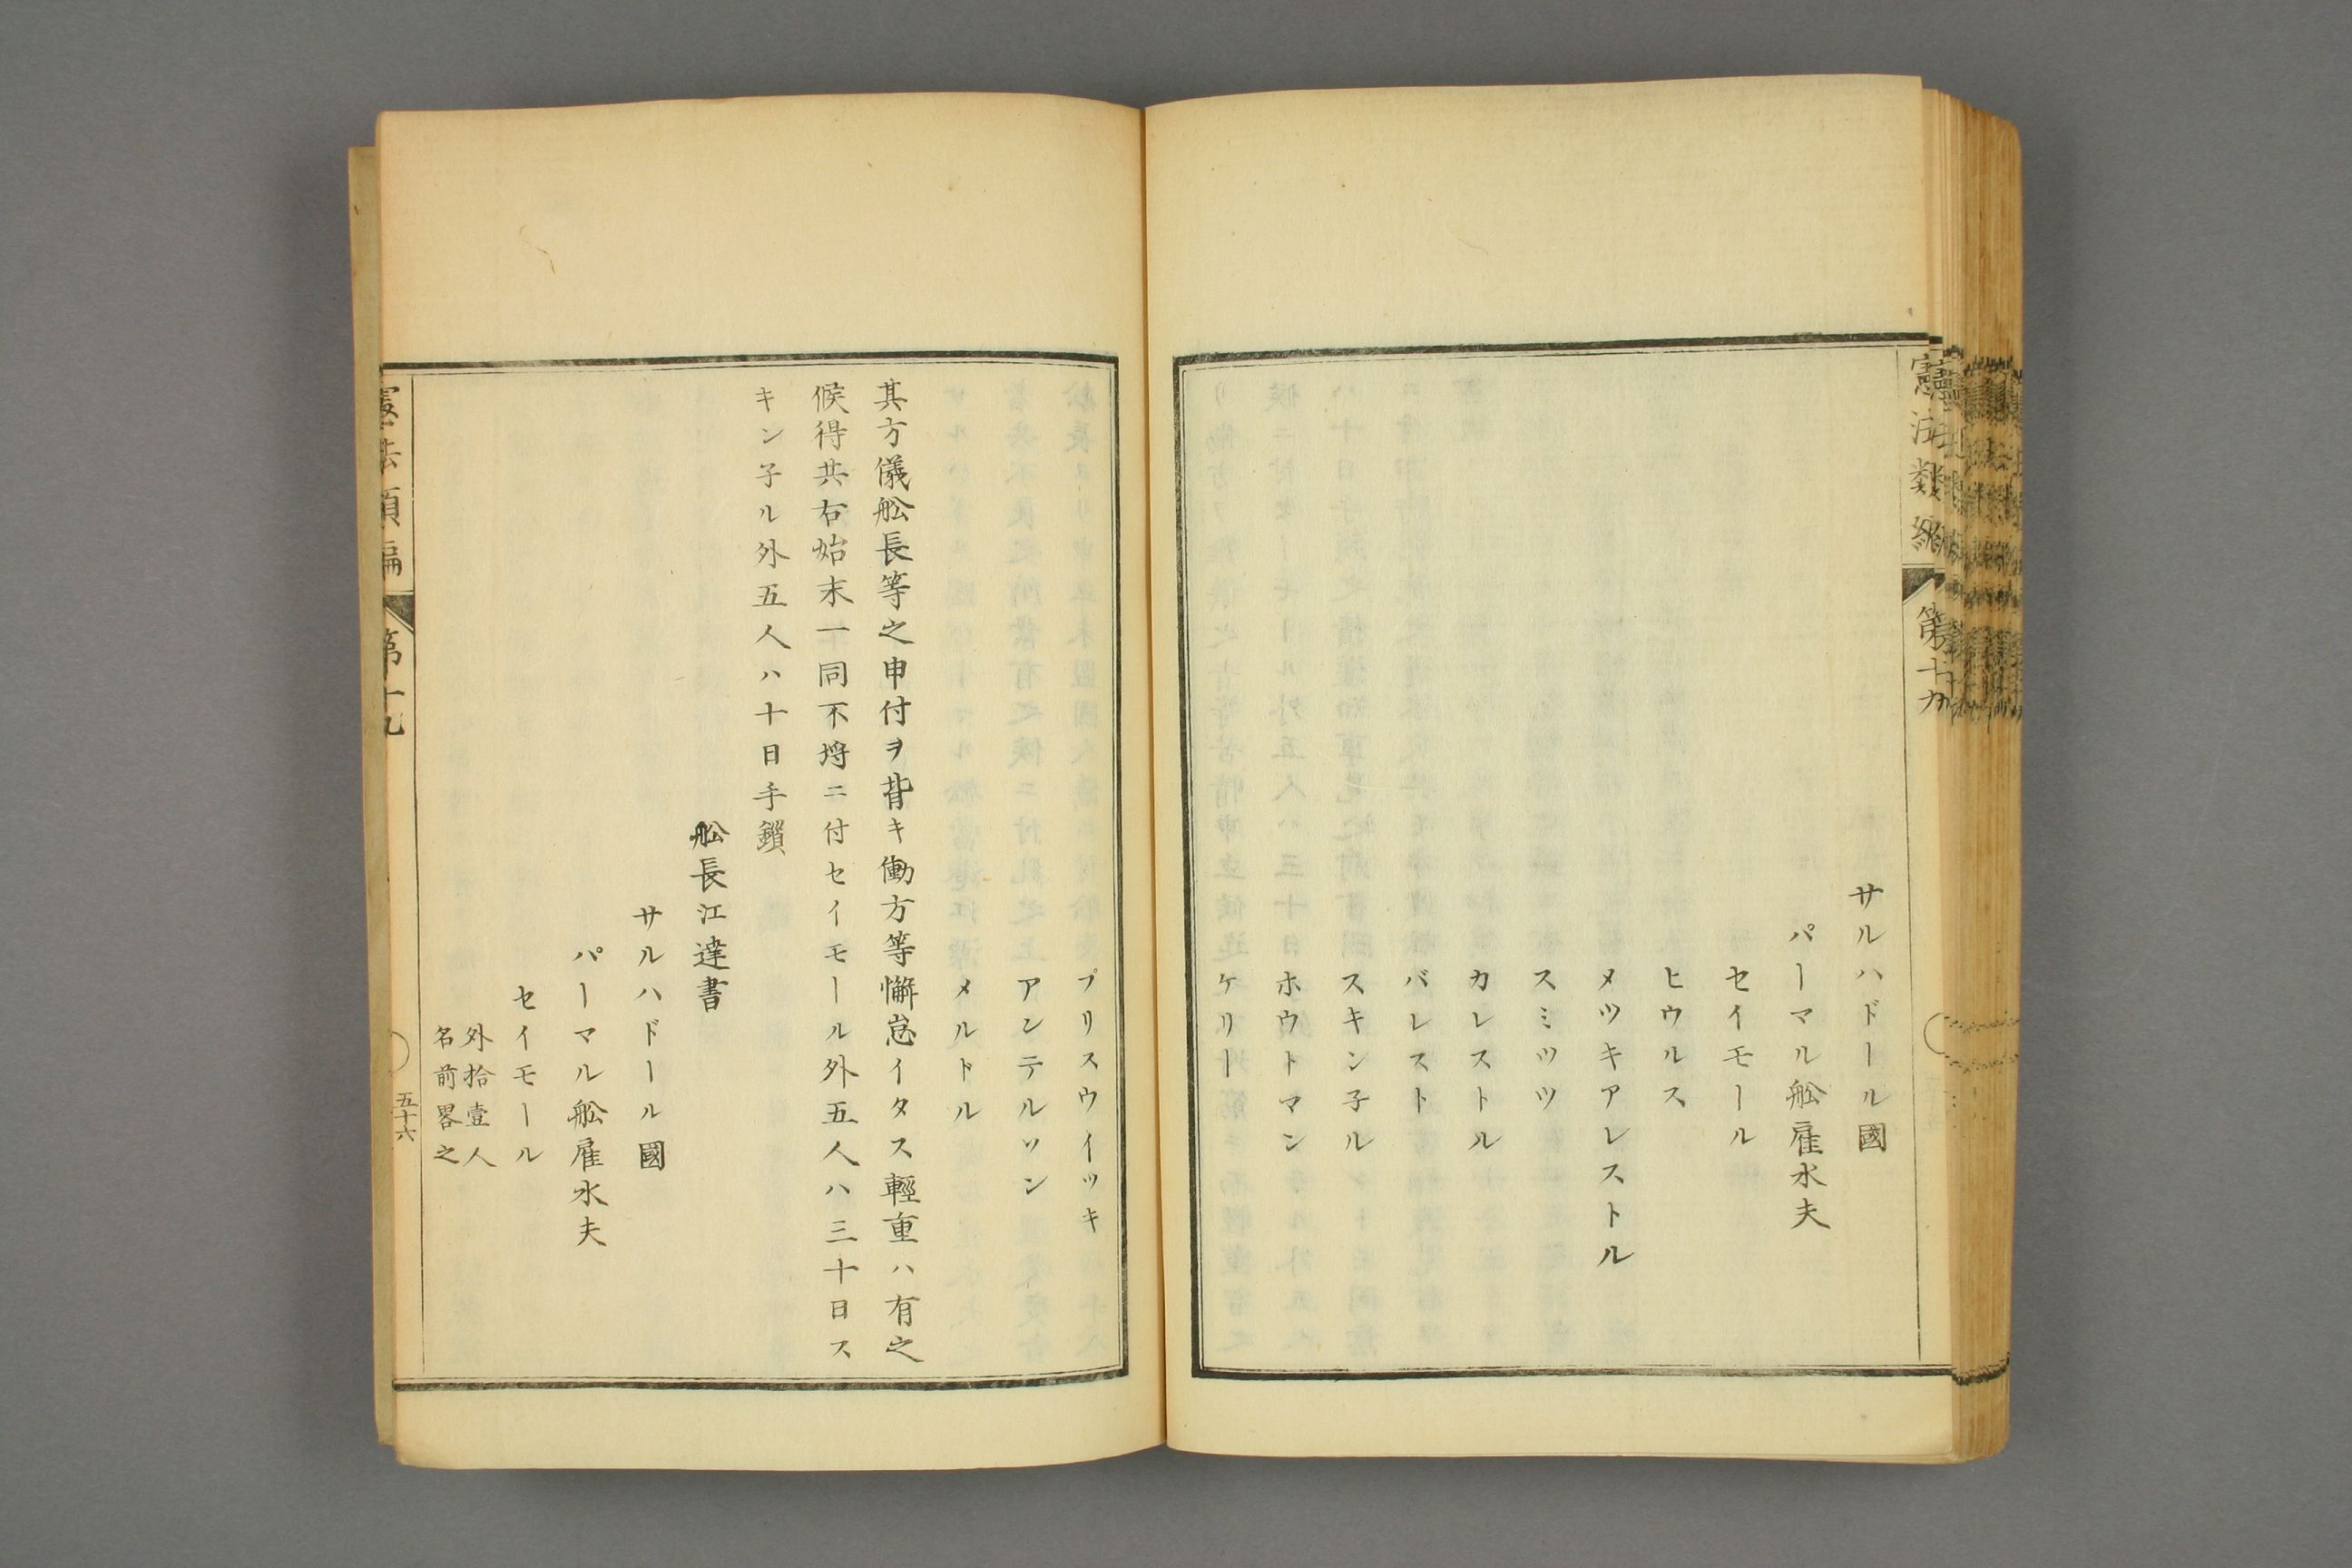 憲法類編
第十九
サルハドール國
パーマル舩雇水夫
セイモール
ヒウルス
メツキアレストル
スミツツ
カレストル
バレスト
スキン子ル
ホウトマン
ケリー
プリスウイツキ
アンテルソン
メルドル
其方儀舩長等之申付ヲ背キ働方等懈怠イタス輕重ハ有之
候得共右始末一同不埓ニ付セイモール外五人ハ三十日ス
キン子ル外五人ハ十日手鎖
舩長江達書
サルハドール國
パーマル舩雇水夫
セイモール
外拾壹人
名前畧之
憲法類編
第十九
五十六